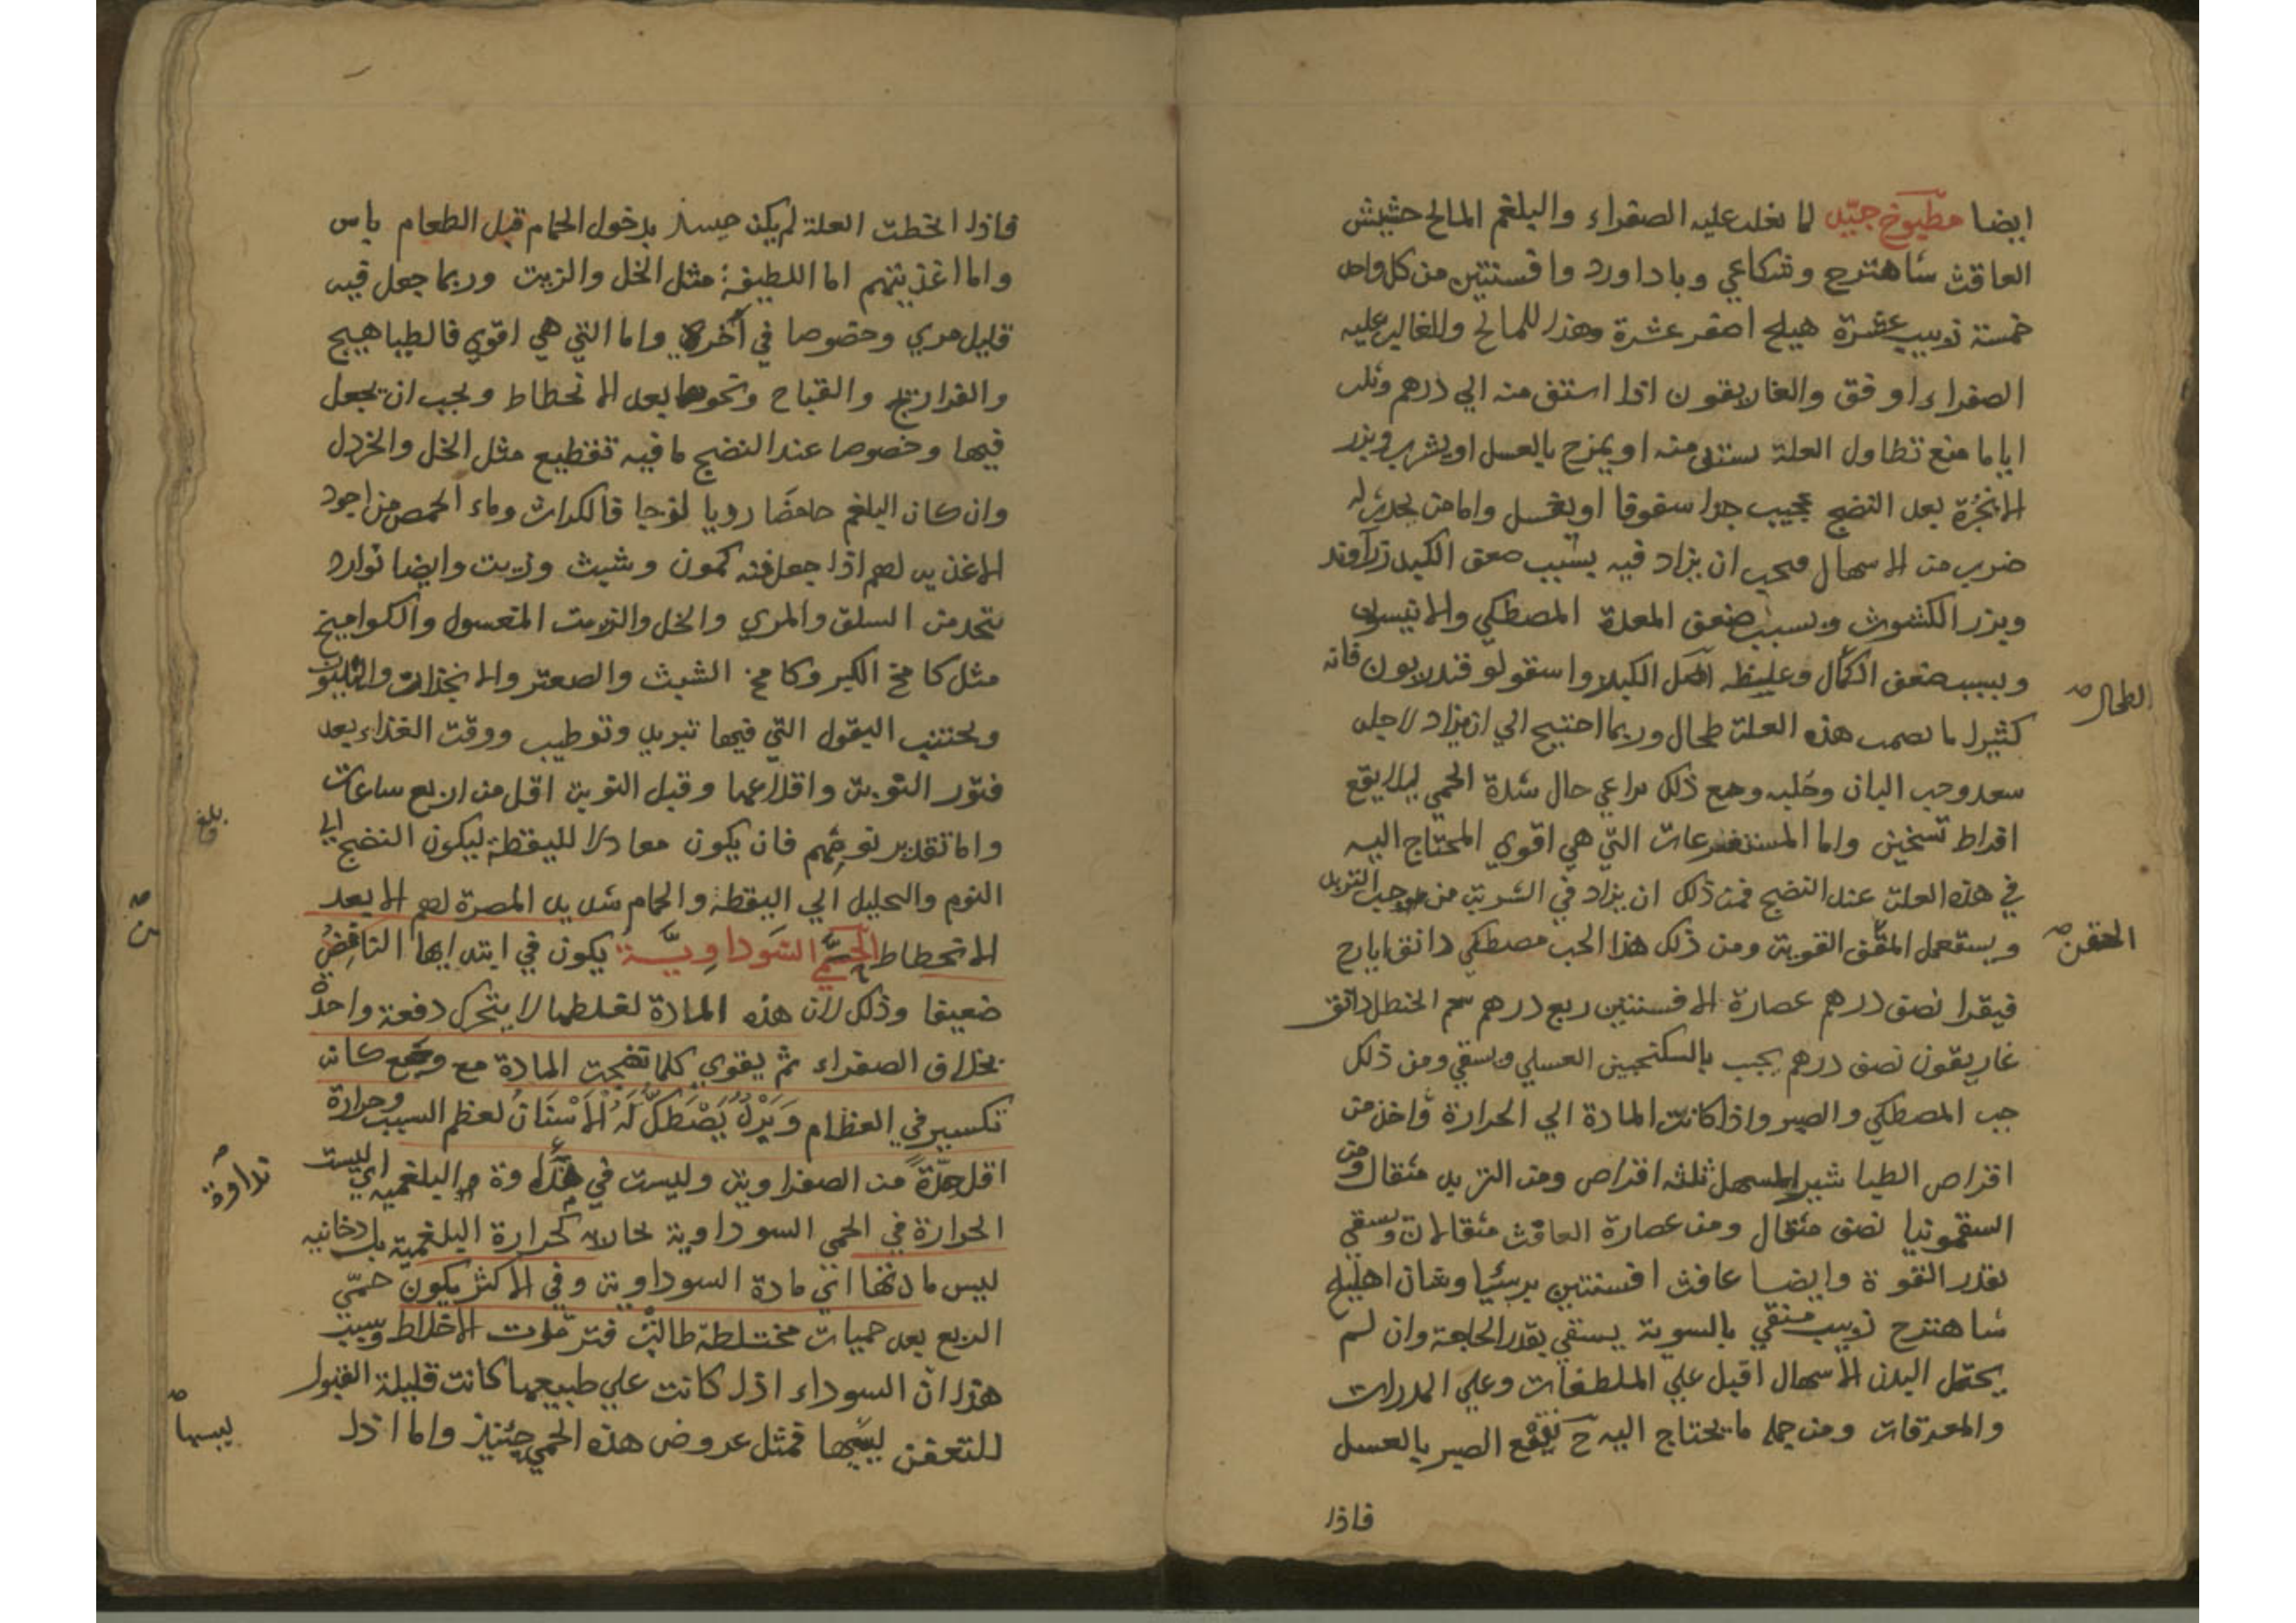 ايضا مطبوخ جيد لما يغلب عليه الصفراء والبلغم المالح حشيش
الغافث شاهترج وشكاعي وباداورد وافسنتين من كل واحد
خمسة زبيب عشرة هليلج اصفر عشرة وهذا للمالح وللغالب عليه
الصفراء اوفق والغاريقون اذا استف منه الي درهم وثلث
اياما منع تطاول العلة يستف منه او يمزج بالعسل او يشرب وبزر
الانجرة بعد النضج عجيب جدا سفوفا او بعسل واما من يحدث له
ضرب من الاسهال فيجب ان يزاد فيه بسبب ضعف الكبد زراوند
وبزر الكشوث وبسبب ضعف المعدة المصطكي والانيسون
وبسبب ضعف وغلظه الكبر واسقولوقندريون فانه
الطحال
كثيرا ما يصحب هذه العلة طحال وربما احتيج الي ان يزاد لاجله
سعد وحب البان وحلبه ومع ذلك يراعي حال شدة الحمي ليلا يقع
افراط تسخين واما المستفرغات التي هي اقوي المحتاج اليه
في هذه العلة عند النضج فمن ذلك ان يزاد في الشربة من التربد
ويستعمل القوية ومن ذلك هذا الحب مصطكي دانق ايارج
الحقن
فيقرا نصف درهم عصارة الافسنتين ربع درهم شحم الحنظل دانق
غاريقون نصف درهم يحبب بالسكنجبين العسلي ويسقي ومن ذلك
حب المصطكي والصبر واذا كانت المادة الي الحرارة فاخذ من
اقراص الطباشير المسهل ثلثه اقراص ومن التربد مثقال ومن
السقمونيا نصف مثقال ومن عصارة الغافث مثقالان ويسقي
بقدر القوة وايضا غافث افسنتين اهليلج
شاهترج زبيب منقي بالسوية يسقي بقدر الحاجة وان لم
يحتمل البدن الاسهال اقبل علي الملطفات وعلي المدرات
والمعرقات ومن جمله ما يحتاج اليه ح نقيع الصبر بالعسل
فاذا
فاذا انحطت العلة لم يكن حينئذ بدخول الحمام قبل الطعام باس
واما اغذيتهم اما اللطيفة مثل الخل والزيت وربما جعل فيه
قليل مري وخصوصا في آخره واما التي هي اقوي فالطياهيج
والفراريج والقباج ونحوها بعد الانحطاط ويجب ان يجعل
فيها وخصوصا عند النضج ما فيه تقطيع مثل الخل والخردل
وان كان البلغم حامضا رديا لزجا فالكراث وماء الحمص من اجود
الاغذيه لهم اذا جعل فيه كمون وشبث وزيت وايضا نوارد
تتخذ من السلق والمري والخل والزيت المغسول والكواميخ
مثل كامخ الكبر وكامخ الشبث والصعتر والانجذان
ويجتنب البقول التي فيها تبريد وترطيب ووقت الغذاء بعد
فتور النوبة واقلاعها وقبل النوبة اقل من اربع ساعات
بلغ
واما تقدير نومهم فان يكون معادلا لليقظة ليكون النضج الي
النوم والتحليل الي اليقظة والحمام شديد المضرة لهم الا بعد
الانحطاط الحمي السوداوية يكون في ابتدايها النافض
ضعيفا وذلك لان هذه المادة لغلظها لا يتحرك دفعة واحدة
بخلاف الصفراء ثم يقوي كلما نضجت المادة مع وجع كانه
تكسير في العظام وبرد يصطك له الاسنان لعظم السبب وحرارة
اقل حدة من الصفراوية وليست في نداوة البلغميه اي ليست
نداوة
الحرارة في الحمي السوداوية بخالابه كحرارة البلغمية بل دخانيه
ليبس مادتها اي مادة السوداوية وفي الاكثر يكون حمي
الربع بعد حميات مختلطة طالت فترمدت الاخلاط وسبب
هذا ان السوداء اذا كانت علي طبيعها كانت قليلة القبول
للتعفن ليبسها فمثل عروض هذه الحمي حينئذ واما اذا
ليبسها